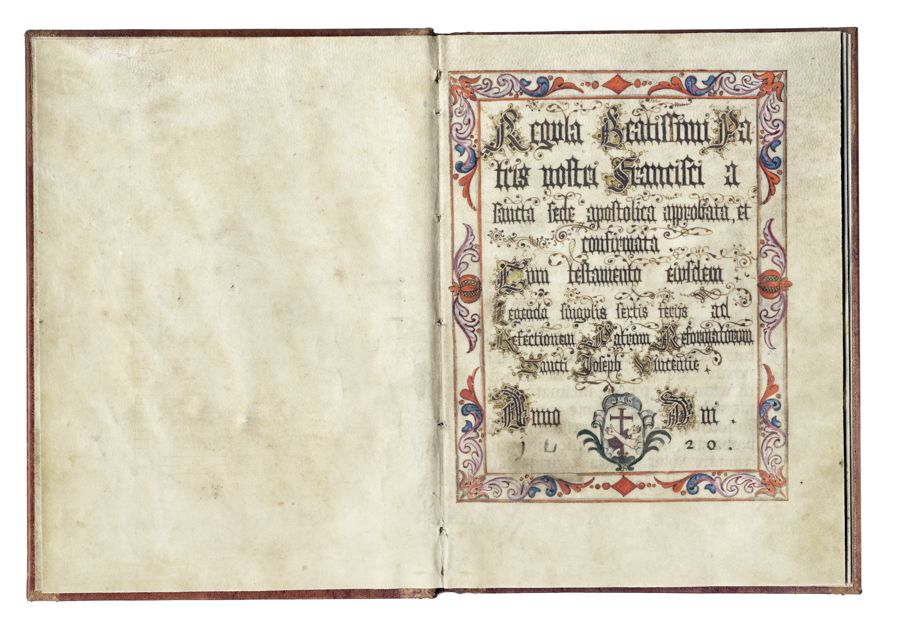 Regula Beatissimi Pa
tris nostri Francisci a
sancta sede apostolica approbata et
confirmata
Cum testamento eiusdem
Legenda singulis sextis ferijs ad
Refectionem Patrum Reformatorum
Sancti Joseph Vincentie .
Anno Dni .
20 .